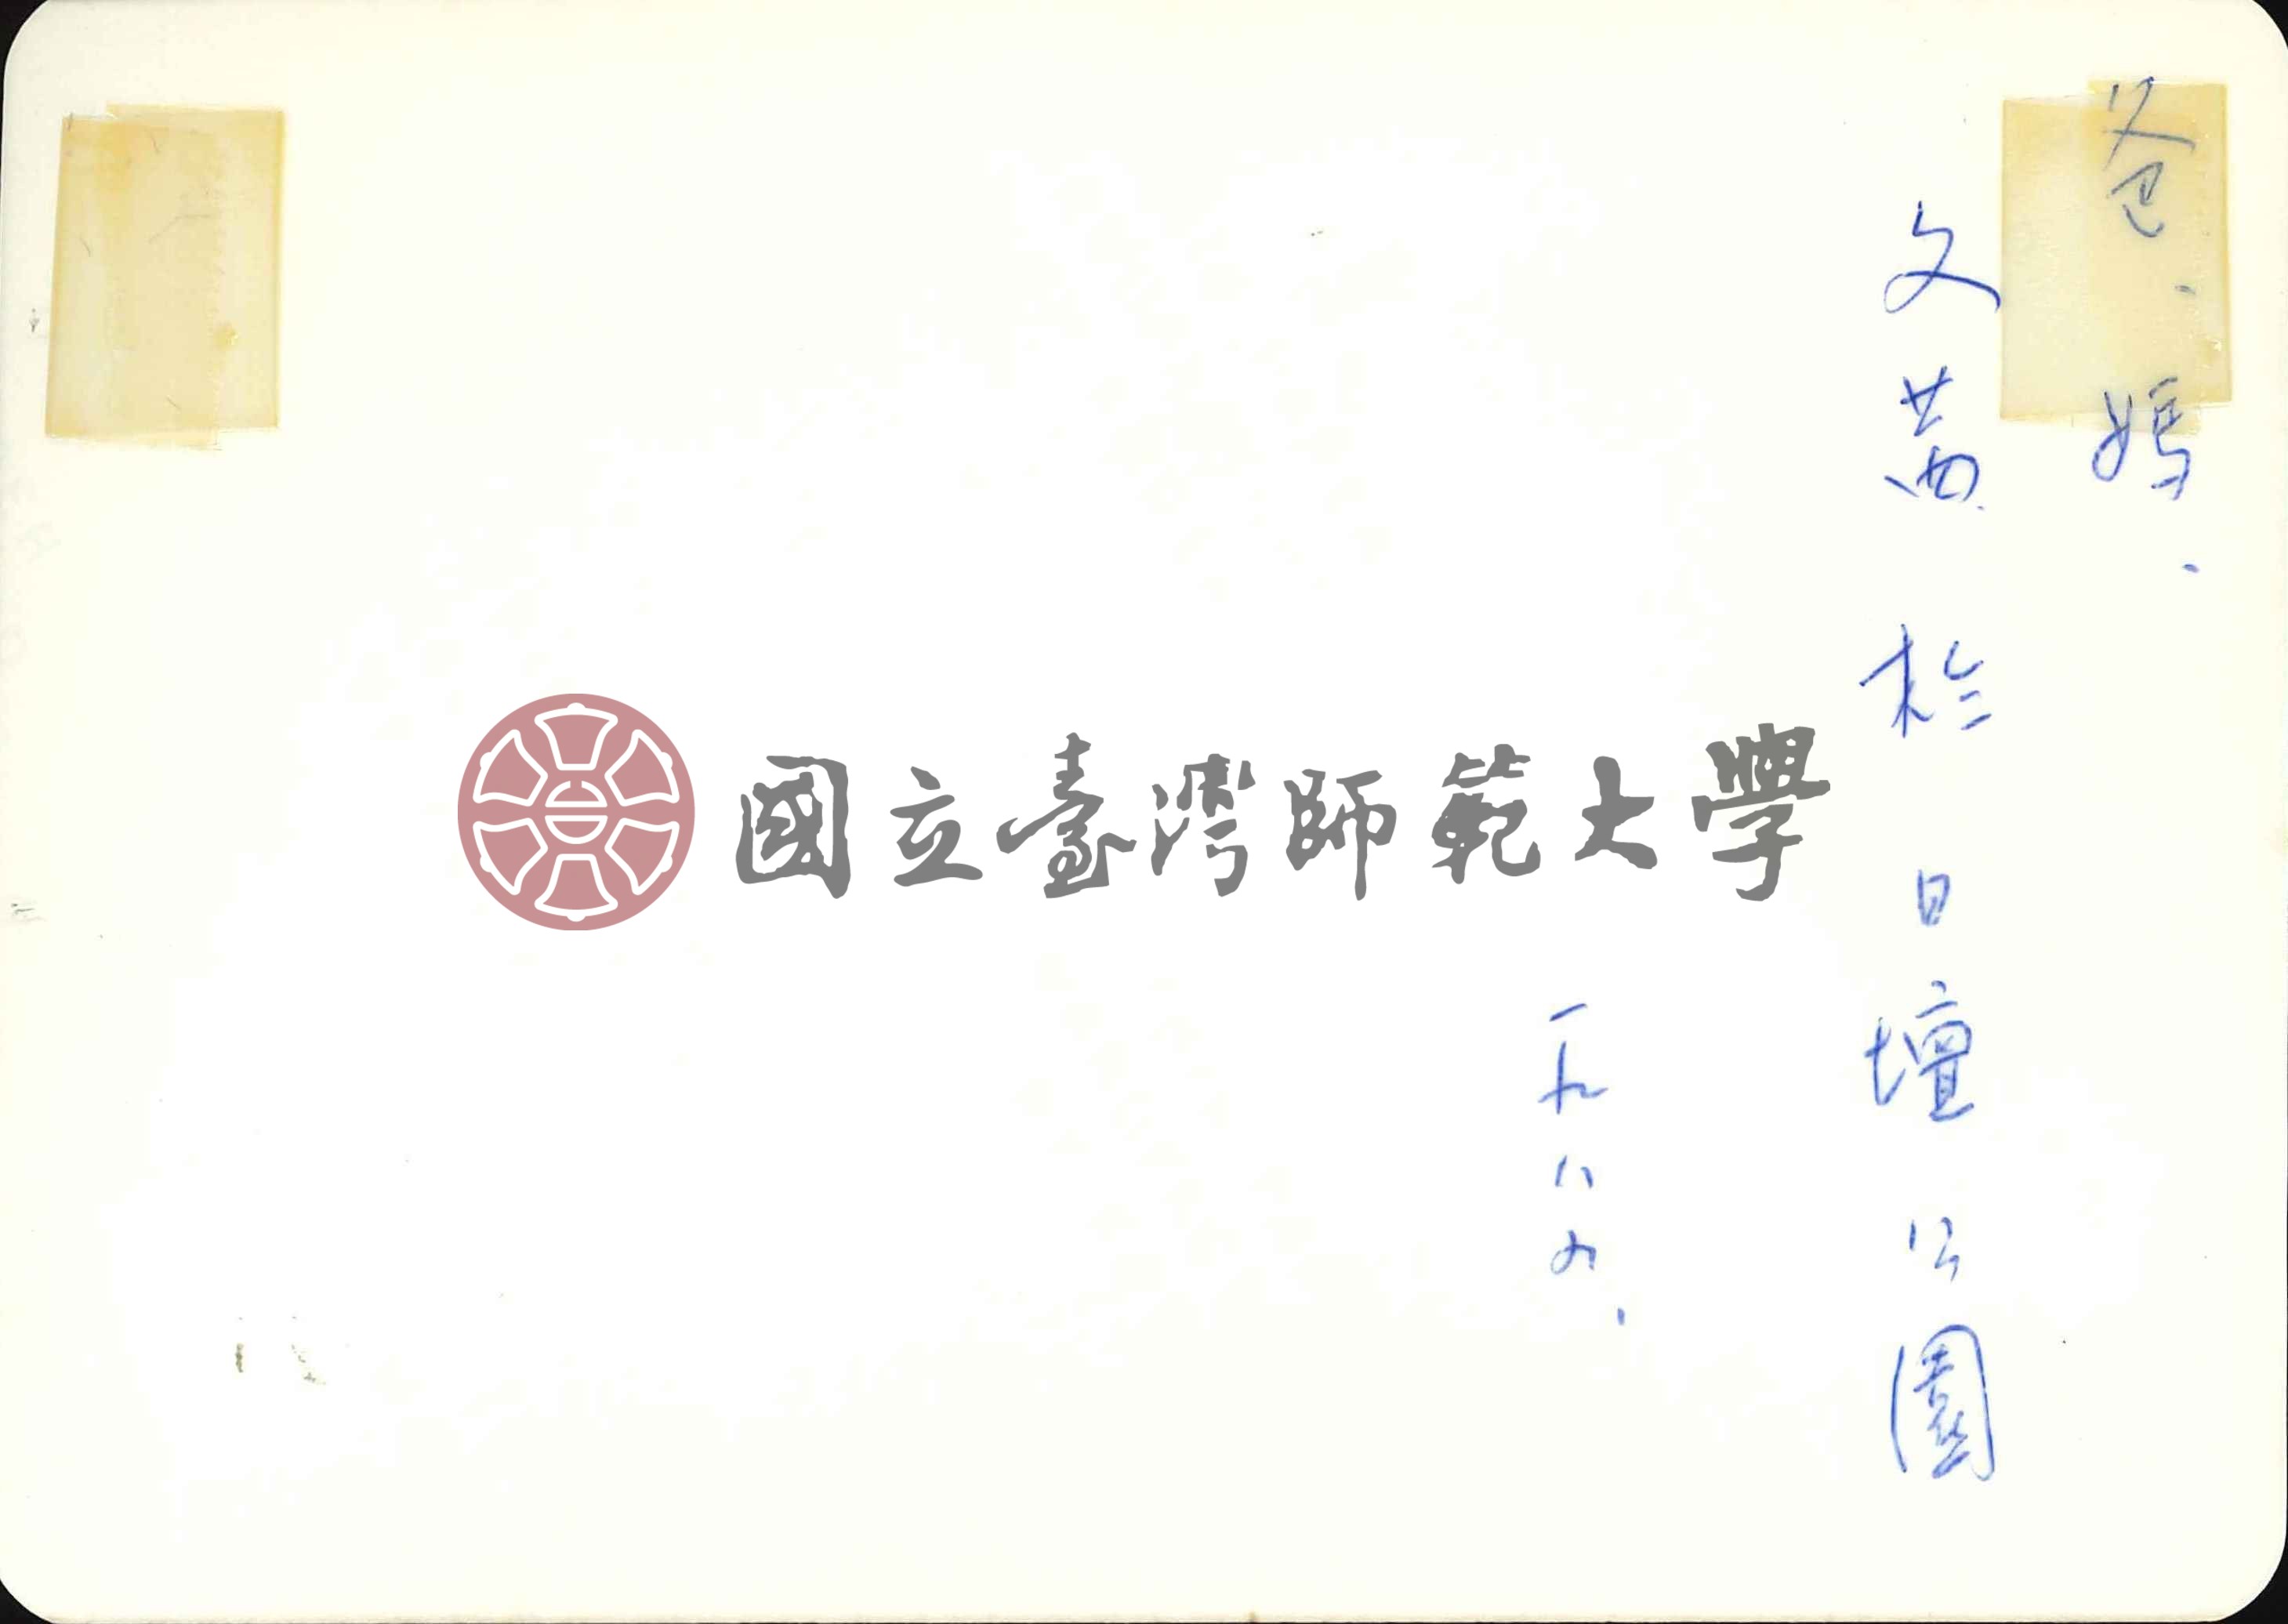 爸、媽、
文茜 於 日壇公園
一九八六.
國立臺灣師範大學